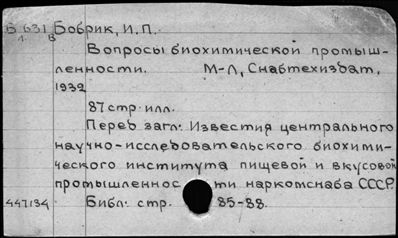 Б 631 Бобрик, И.П.
1. В
Вопросы биохимической промыш-
ленности. М-Л, Снабтехиздат,
1932
87 стр. илл.
Перед загл. Известия центрального
научно-исследовательского биохими-
ческого института пищевой и вкусовой
промышленнос ти наркомснаба СССР.
447134 Библ. стр. 85-88.